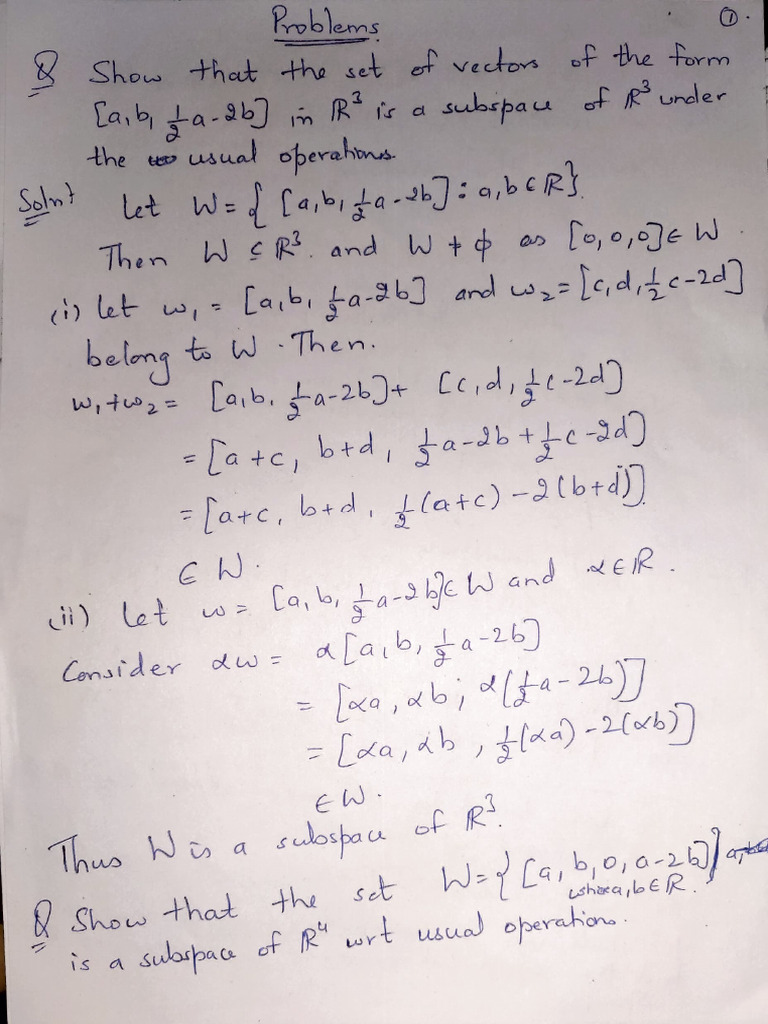 Problems ①.
Q Show that the set of vectors of the form
[a, b, 1/2 a-2b] in ℝ³ is a subspace of ℝ³ under
the usual operations.
Soln: Let W = { [a, b, 1/2 a-2b] : a, b ∈ ℝ}.
Then W ⊆ ℝ³. and W ≠ ϕ as [0, 0, 0] ∈ W.
(i) let w₁ = [a, b, 1/2 a-2b] and w₂ = [c, d, 1/2 c-2d]
belong to W. Then.
w₁+w₂ = [a, b, 1/2 a-2b] + [c, d, 1/2 c-2d]
= [a+c, b+d, 1/2 a-2b + 1/2 c-2d]
= [a+c, b+d, 1/2 (a+c) - 2(b+d)]
∈ W.
(ii) Let w = [a, b, 1/2 a-2b] ∈ W and α ∈ ℝ.
Consider αw = α[a, b, 1/2 a-2b]
= [αa, αb, α(1/2 a-2b)]
= [αa, αb, 1/2 (αa) - 2(αb)]
∈ W.
Thus W is a subspace of ℝ³.
Q Show that the set W = { [a, b, 0, a-2b] }
where a, b ∈ ℝ.
is a subspace of ℝ⁴ wrt usual operations.